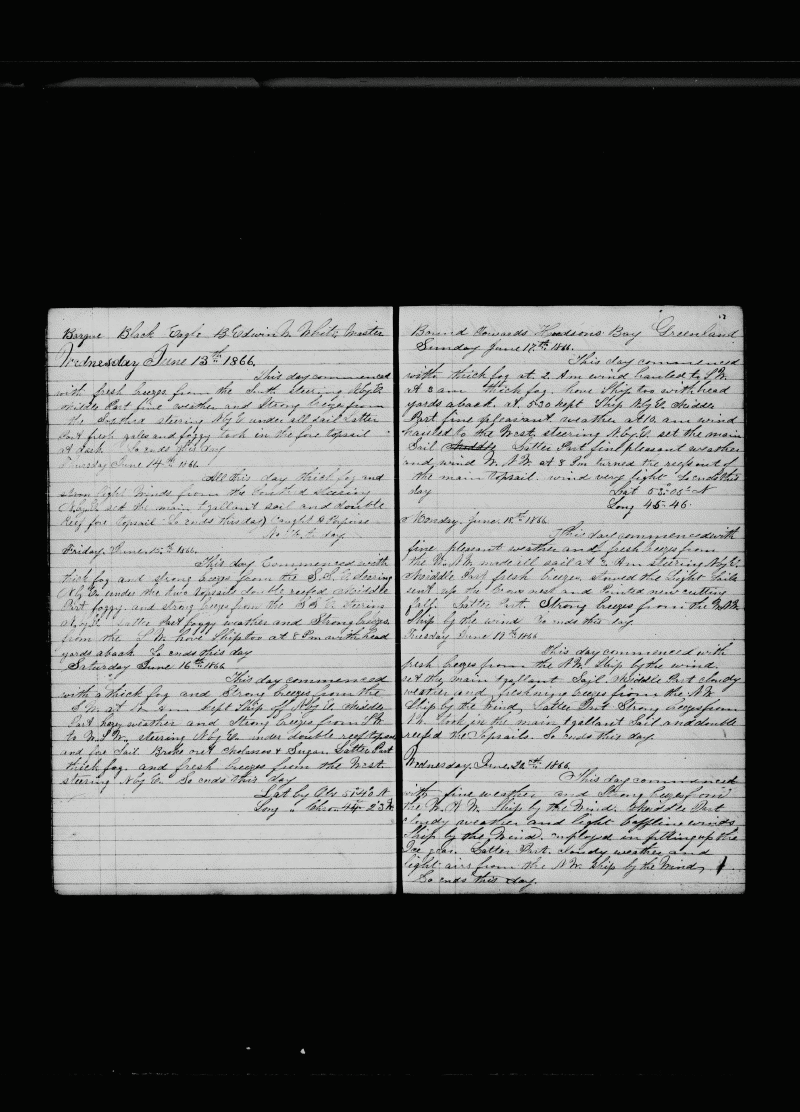 Barque Black Eagle B Edwin W White Master
Wednesday June 13th 1866
This day commenced
with fresh breezes from the South steering N by E
Middle Part fine weather and Strong breezes from
the Southard steering N by E under all sail Latter
Part fresh gales and foggy took in the fore topsail
at dark So ends this day
Thursday June 14th 1866
All this day thick fog and
light winds from the steering
N by E set the main Tgallant sail and double
Reef fore Topsail So ends this day Caught a Porpoise
No day
Friday June 15th 1866
This day Commenced with
thick fog and strong breezes from the S.S.E. steering
N by E under the two topsails double reefed Middle
Part foggy and strong breezes from the S S E steering
N by E Latter Part foggy weather and Strong breezes
from the S.W. hove Ship too at 8 Pm with head
yards aback So ends this day
Saturday June 16th 1866
This day commenced
with a thick fog and Strong breezes from the
S.W. at am kept Ship off N by E Middle
Part hazy weather and Strong breezes from S.W.
to W.S.W. steering N by E under double reef topsails
and fore Sail Broke out Molasses & Sugar Latter Part
thick fog and fresh breezes from the West
steering N by E. So ends this day
Lat by Obs 51 40 N
Long " Chro 44 23 W
Bound towards Hudsons Bay Greenland
Sunday June 17th 1866
This day commenced
with thick fog at 2 Am wind hauled to S.W.
at 3 am thick fog hove Ship too with head
yards aback at 5.30 kept Ship N by E Middle
Part fine pleasant weather at 10 am wind
hauled to the West steering N by E. set the main
Sail Latter Part fine pleasant weather
and wind W.N.W. at 8 Pm turned the reefs out of
the main Topsail wind very light So ends this
day Lat 52-05 N
Long 45-46
Monday June 18th 1866
This day commenced with
fine pleasant weather and fresh breezes from
the W.N.W. made all sail at 2 Am Steering N by E
Middle Part fresh breezes. Stowed the light Sails
sent up the Crow nest and Pointed new cutting
falls Latter Part Strong breezes from the W.N.W.
Ship by the wind So ends this day
Tuesday June 19th 1866
This day commenced with
fresh breezes from the N.W. Ship by the wind
set the main tgallant Sail Middle Part cloudy
weather and freshning breezes from the N.W.
Ship by the Wind Latter Part Strong breezes from
N.W. took in the main tgallant Sail and double
reefed the Topsails So ends this day
Wednesday June 20th 1866
This day commenced
with fine weather and Strong breezes from
the W.N.W. Ship by the Wind. Middle Part
cloudy weather and light baffling winds
Ship by the Wind employed in fitting up the
Ice gear Latter Part cloudy weather and
light airs from the N.W. Ship by the Wind
So ends this day.